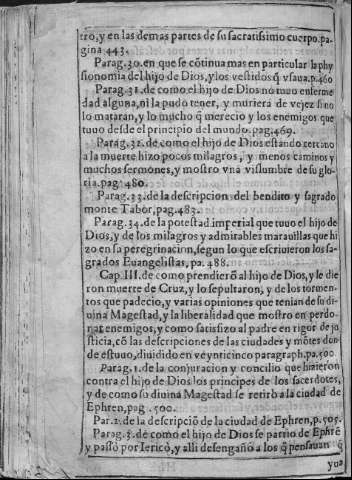 tro, y en las demas partes de su sacratissimo cuerpo. pa-
gina 443.
Parag. 30. en que se cõtinua mas en particular la phy
sionomia del hijo de Dios, y los vestidos q̃ vsaua. p. 460
Parag. 31. de como el hijo de Dios no tuuo enferme
dad alguna, ni la pudo tener, y muriera de vejez si no
lo mataran, y lo mucho q̃ merecio y los enemigos que
tuuo desde el principio del mundo. pag. 469.
Parag. 32. de como el hijo de Dios estando
a la muerte hizo pocos milagros, y menos caminos y
muchos sermones, y mostro vna vislumbre de su glo-
ria. pag. 480.
Parag. 33. de la descripcion del bendito y sagrado
monte Tabor, pag. 483.
Parag. 34. de la potestad imperial que tuuo el hijo de
Dios, y de los milagros y admirables marauillas que hi
zo en su peregrinacion, segun lo que escriuieron los sa-
grados Euangelistas, pa. 488.
Cap. III. de como prendierõ al hijo de Dios, y le die
ron muerte de Cruz, y lo sepultaron, y de los tormen-
tos que padecio, y varias opiniones que tenian de su di-
uina Magestad, y la liberalidad que mostro en perdo-
nar enemigos, y como satisfizo al padre en rigor de ju
sticia, cõ las descripciones de las ciudades y mõtes don
de estuuo, diuidido en veynticinco paragraph. pa. 500
Parag. 1. de la conjuracion y concilio que hizieron
contra el hijo de Dios los principes de los sacerdotes,
y de como su diuina Magestad se retirò a la ciudad de
Ephren, pag. 500.
Par. 2. de la descripciõ de la ciudad de Ephren, p. 505.
Parag. 3. de como el hijo de Dios se partio de Ephrẽ
y passò por Iericò, y alli desengañò a los q̃ pensauan q̃
yua